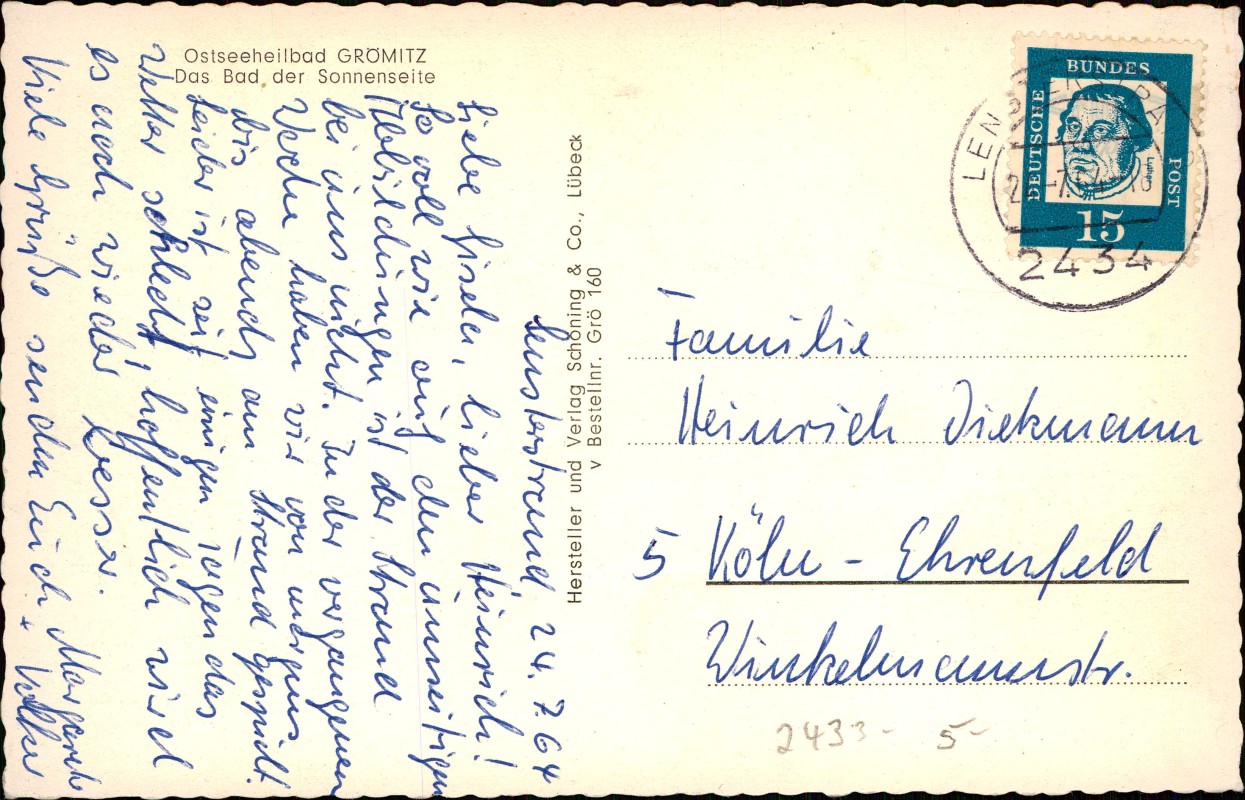 Ostseeheilbad GRÖMITZ
Das Bad der Sonnenseite
Lensterstrand, 24. 7. 64
Liebe Gisela, lieber Heinrich!
So voll wie auf den umseitigen
Abbildungen ist der Strand
bei uns nicht. In der vergangenen
Woche haben wir von morgens
bis abends am Strand gespielt.
Leider ist seit einigen Tagen das
Wetter schlecht, hoffentlich wird
es noch wieder besser.
Viele Grüße senden Euch Margarete
+ Volker
Hersteller und Verlag Schöning & Co., Lübeck
v Bestellnr. Grö 160
DEUTSCHE
BUNDES
POST
Luther
15
2434
Familie
Heinrich Diekmann
5 Köln - Ehrenfeld
Winkelmannstr.
2433- 5-